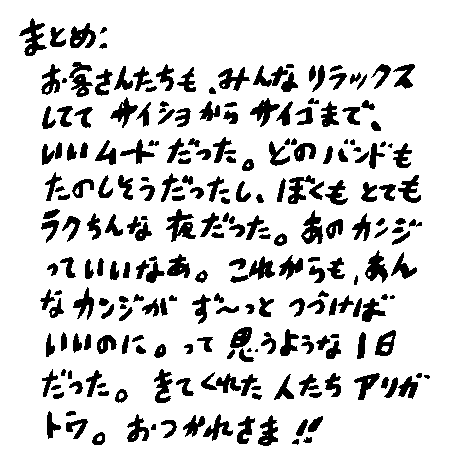 まとめ:
お客さんたちも、みんなリラックス
しててサイショからサイゴまで、
いいムードだった。どのバンドも
たのしそうだったし、ぼくもとても
ラクちんな夜だった。あのカンジ
っていいなあ。これからも、あん
なカンジがず〜っとつづけば
いいのに。って思うような1日
だった。きてくれた人たちアリガ
トウ。おつかれさま!!